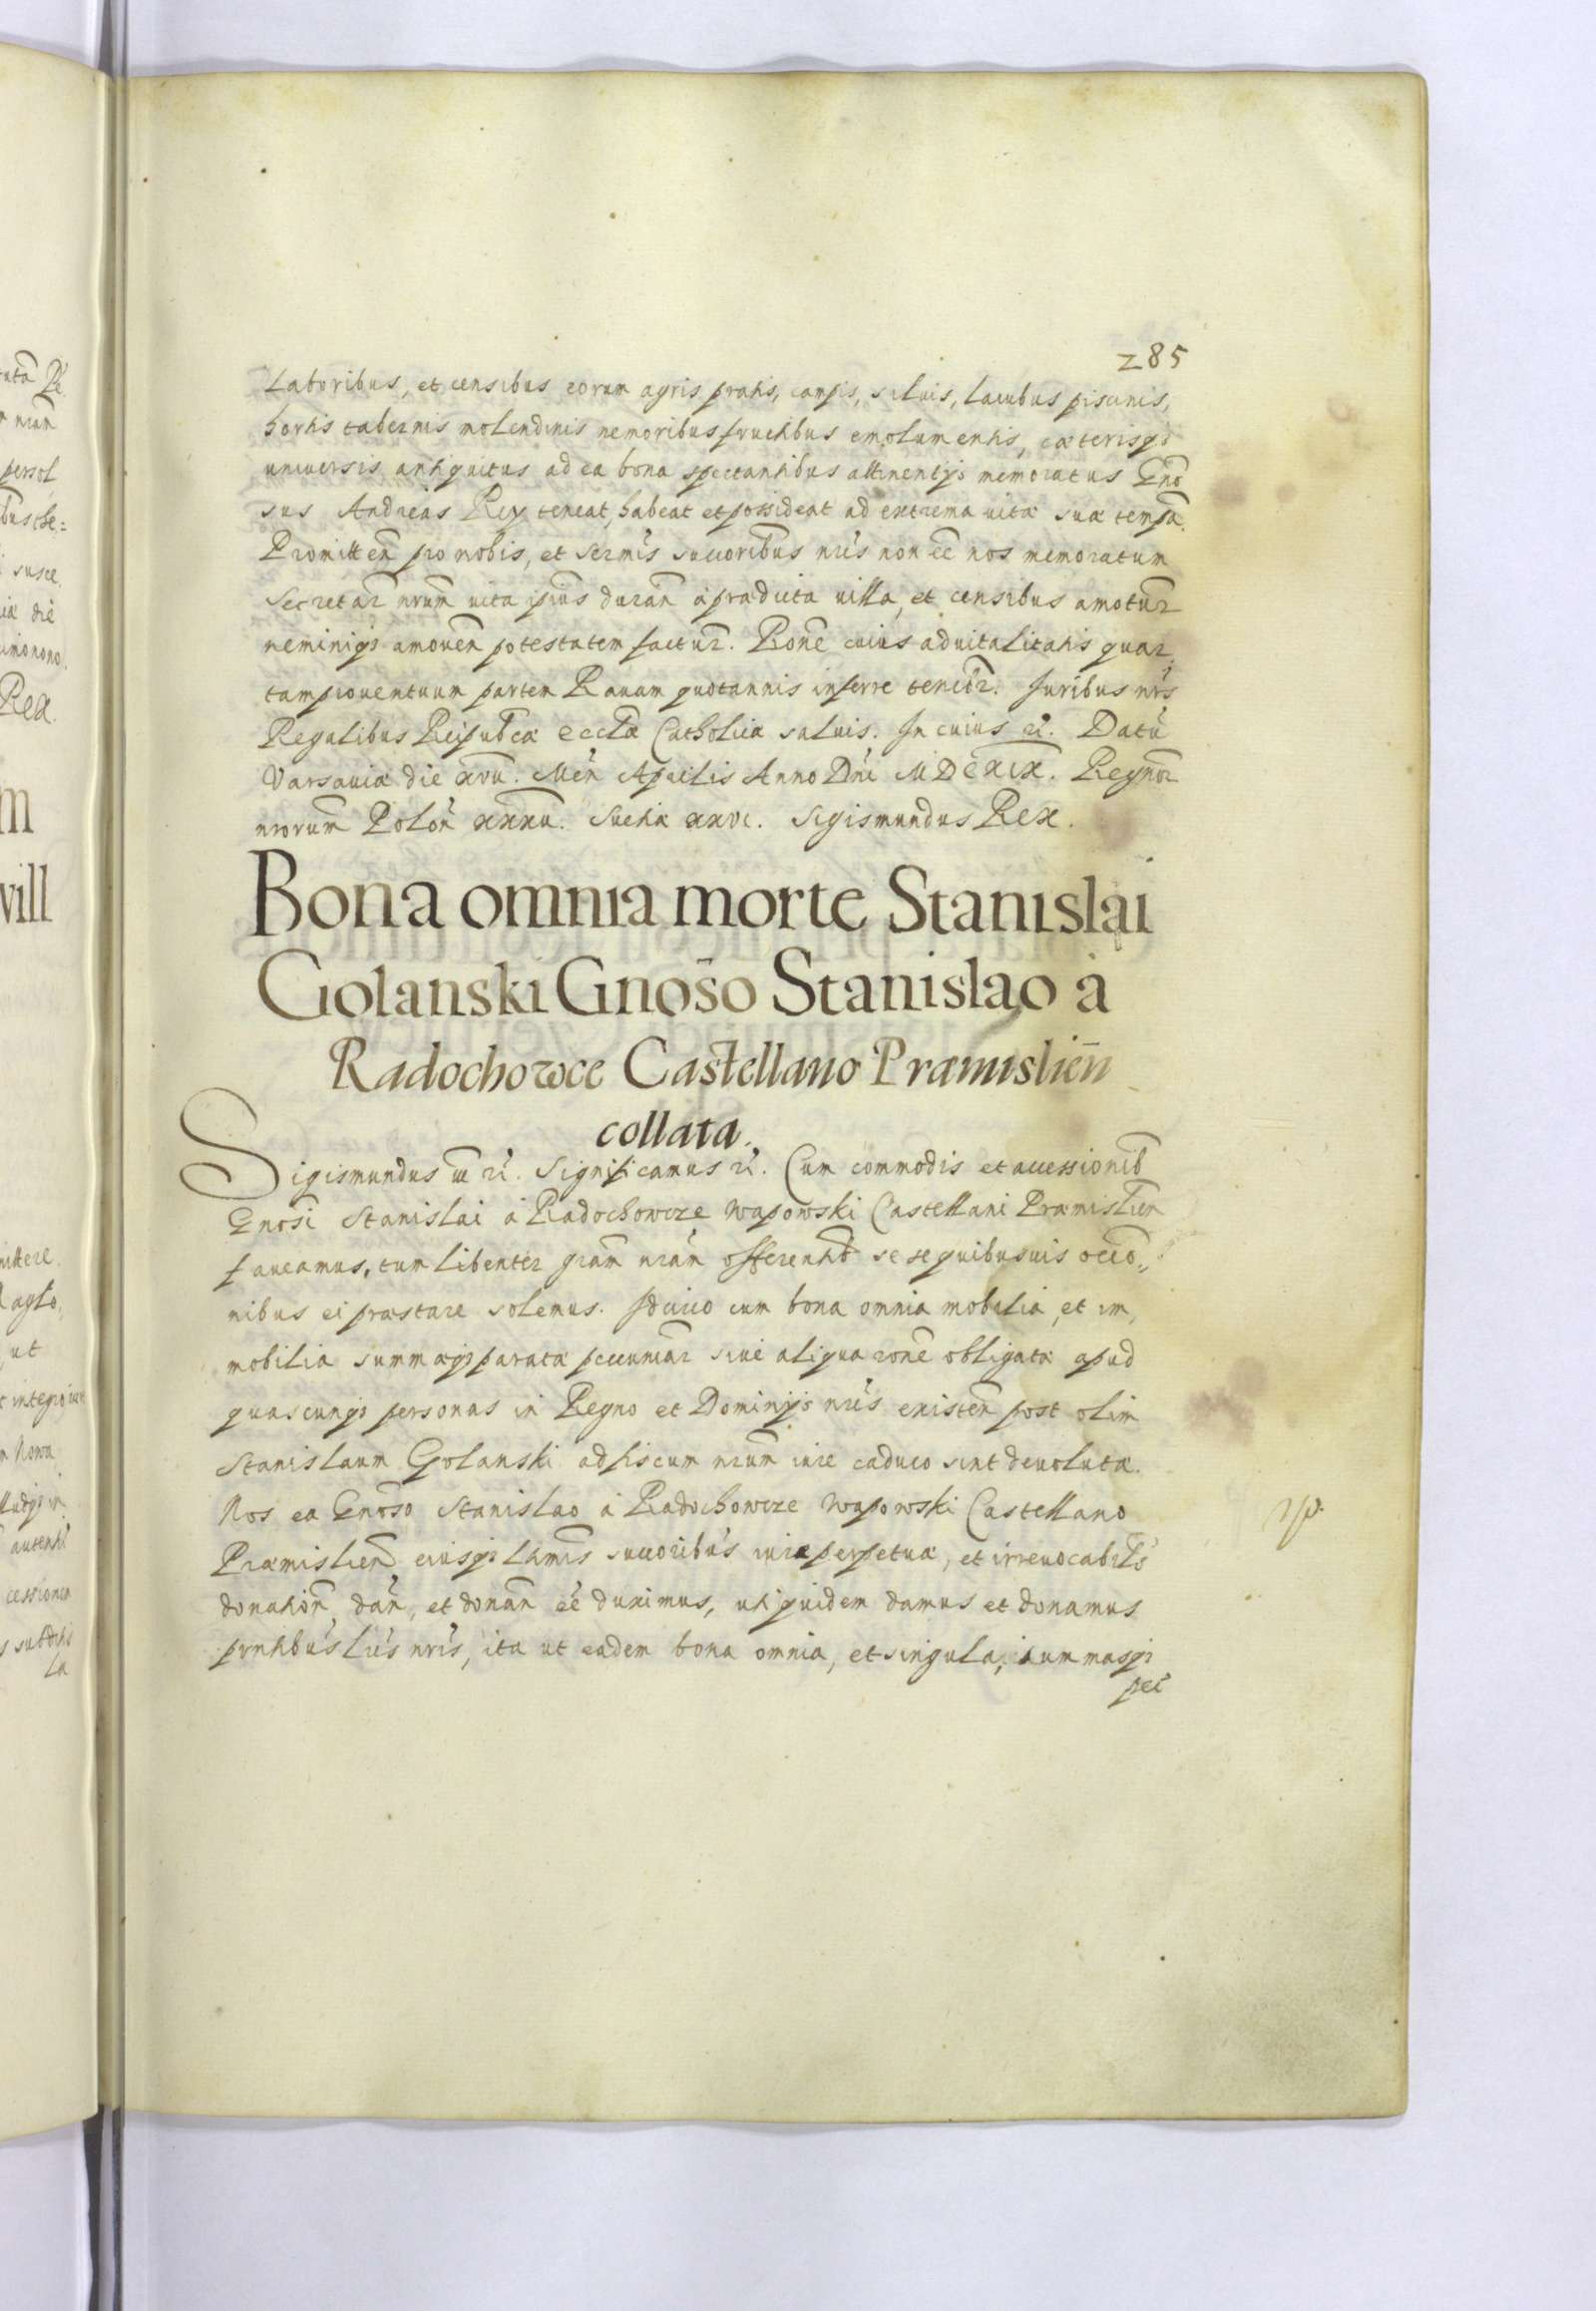 285
Laboribus, et censibus eorum agris pratis, campis, siluis, lacubus piscinis,
hortis tabernis molendinis nemoribus fructibus emolumentis, cæterisq3
uniuersis antiquitus ad ea bona spectantibus attinentijs memoratus Gn̄o
sus Andreas Rey teneat, habeat et possideat ad extrema uitæ suæ temp̄a.
Promitteñ pro nobis, et Serm̄is succoribus nr̄is non eē nos memoratum
Secretar̄ nrum̄ uita ipiūs durañ à prædicta uilla, et censibus amotur̄
neminiq3 amoueñ potestatem factur̄. Rone cuius aduitalitatis quar
tam prouentuum partem Rauam quotannis inferre tenebr̄. Juribus nrīs
Regalibus Reipubcæ Eeclæ Catholicæ saluis. In cuius ri. Datū
Varsauiæ die xvii. Meñ Aprilis Anno Dni MDCXIX. Regnor̄
nrorum̄ Poloñ xxxii. Sueciæ xxvi. Sigismundus Rex.
Bona omnia morte Stanislai
Golanski Gnōso Stanislao à
Radochowce Castellano Præmislieñ
collata.
Sigismundus iii ri. Significamus ri. Cum commodis et accessionib
Gnosi Stanislai à Radochowcze Wapowski Castellani Præmislien
faueamus, tum libenter gram̄ nram̄ offerentib sese quibusuis occo
nibus ei præstare solemus. Idcirco cum bona omnia mobilia, et im,
mobilia summæq3 paratæ pecuniar̄ siue aliqua rone obligatæ apud
quascunq3 personas in Regno et Dominijs nrīs existeñ post olim
Stanislaum Golanski ad fiscum nrum̄ iure caduco sint deuoluta.
Nos ea Gnoso Stanislao à Radochowcze Wapowski Castellano
Præmislien eiusq3 Ltmīs succoribus iure perpetuæ, et irreuocabilis
donation̄, dañ, et donañ eē duximus, uti quidem damus et donamus
pn̄tibus Lrīs nrīs, ita ut eadem bona omnia, et singula, summasq3
pec